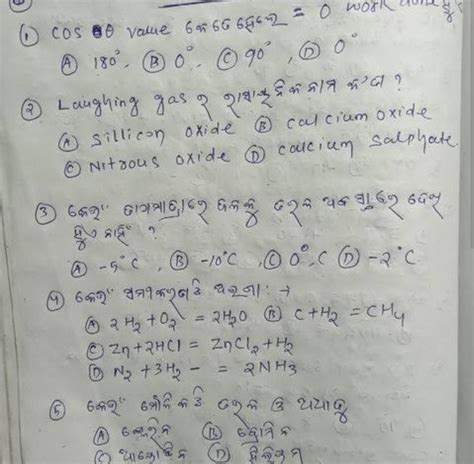 ① COS θ value କେତେ ହେଲେ = 0 work done
Ⓐ 180°, Ⓑ 0°, Ⓒ 90°, Ⓓ 0°
② Laughing gas ର ରାସାୟନିକ ନାମ କ'ଣ ?
Ⓐ Sillicon oxide Ⓑ calcium oxide
Ⓒ Nitrous oxide Ⓓ calcium Salphate.
③ କେଉଁ ତାପମାତ୍ରାରେ ଜଳକୁ ତରଳ ଅବସ୍ଥାରେ ଦେଖି
ହୁଏ ନାହିଁ ?
Ⓐ -5°C, Ⓑ -10°C, Ⓒ 0°C Ⓓ -2°C
④ କେଉଁ ସମୀକରଣଟି :→
Ⓐ 2H₂+O₂ = 2H₂O Ⓑ C+H₂ = CH₄
Ⓒ Zn+2HCl = ZnCl₂+H₂
Ⓓ N₂+3H₂ = 2NH₃
⑤ କେଉଁ ମୌଳିକଟି ତରଳ ଓ ଅଧାତୁ
Ⓐ କ୍ଲୋରିନ Ⓑ ବ୍ରୋମିନ
Ⓒ Ⓓ